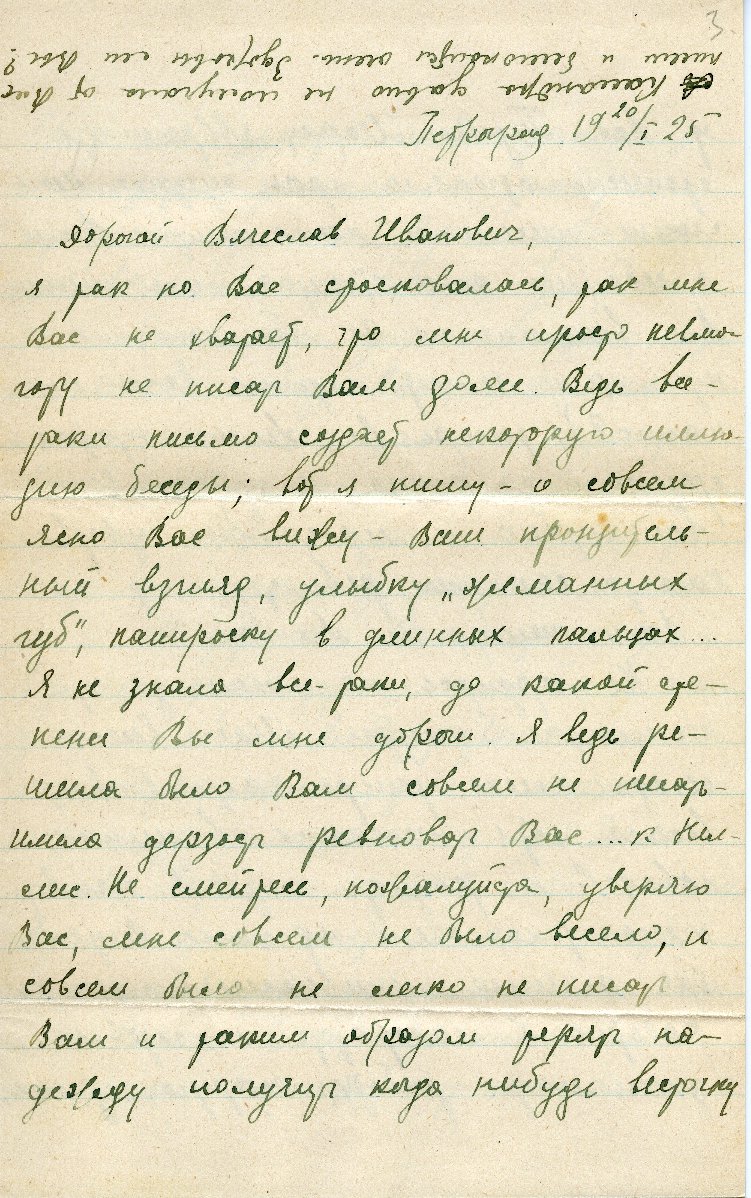 3.
Кассандра давно не получала от Вас
писем и беспокоится очень. Здоровы ли Вы?
Петроград 19 20/I 25
Дорогой Вячеслав Иванович,
я так по Вас стосковалась, так мне
Вас не хватает, что мне просто невмо-
готу не писать Вам долее. Ведь все-
таки письмо создает некоторую иллю-
зию беседы; вот я пишу – и совсем
ясно Вас вижу – Ваш пронзитель-
ный взгляд, улыбку „жеманных
губ", папироску в длинных пальцах...
Я не знала все-таки, до какой сте-
пени Вы мне дороги. Я ведь ре-
шила было Вам совсем не писать –
имела дерзость ревновать Вас... к Нел-
ли. Не смейтесь, пожалуйста, уверяю
Вас, мне совсем не было весело, и
совсем было не легко не писать
Вам и таким образом терять на-
дежду получить когда нибудь весточку